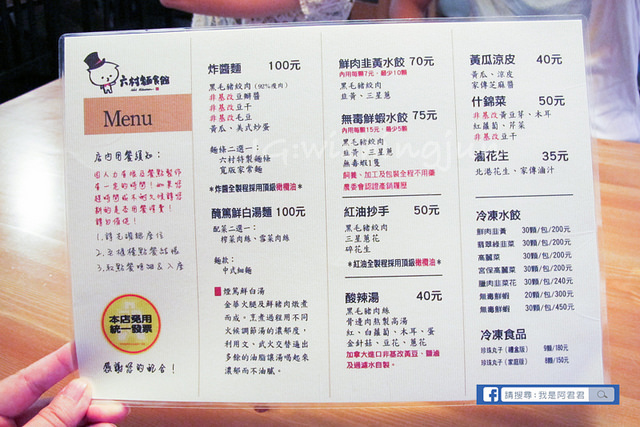 六村麵食館
Menu
店內用餐須知:
1.請先確認座位
2.至櫃檯點餐結帳
本店免用
統一發票
感謝您的配合!
炸醬麵 100元
黑毛豬絞肉(92%瘦肉)
非基改豆瓣醬
非基改豆干
非基改毛豆
黃瓜、美式炒蛋
麵條二選一:
六村特製麵條
寬版家常麵
*炸醬全製程採用頂級橄欖油*
醃篤鮮白湯麵 100元
配菜二選一:
榨菜肉絲、雪菜肉絲
麵款:
中式細麵
醃篤鮮白湯
金華火腿及鮮豬肉燉煮
而成。烹煮過程用不同
火候調節湯的濃郁度,
利用文、武火交替逼出
多餘的油脂讓湯喝起來
濃郁而不油膩。
鮮肉韭黃水餃 70元
內用每顆7元,最少10顆
黑毛豬絞肉
韭黃、三星蔥
無毒鮮蝦水餃 75元
內用每顆15元,最少5顆
黑毛豬絞肉
韭黃、三星蔥
無毒蝦1隻
飼養、加工及包裝全程不用藥
農委會認證產銷履歷
紅油抄手 50元
黑毛豬絞肉
三星蔥花
碎花生
*紅油全製程採用頂級橄欖油*
酸辣湯 40元
黑毛豬肉絲
背邊肉熬製高湯
紅、白蘿蔔、木耳、蛋
金針菇、豆花、蔥花
加拿大進口非基改黃豆、鹽滷
及過濾水自製。
黃瓜涼皮 40元
黃瓜、涼皮
家傳芝麻醬
什錦菜 50元
非基改黃豆芽、木耳
紅蘿蔔、芹菜
非基改豆干
滷花生 35元
北港花生、家傳滷汁
冷凍水餃
鮮肉韭黃 30顆/包/200元
翡翠綠韭菜 30顆/包/200元
高麗菜 30顆/包/200元
宮保高麗菜 30顆/包/200元
臘肉韭菜花 30顆/包/240元
無毒鮮蝦 20顆/包/300元
無毒鮮蝦 30顆/包/450元
冷凍食品
珍珠丸子(禮盒版) 9顆/180元
珍珠丸子(家庭版) 8顆/150元
f 請搜尋:我是阿君君